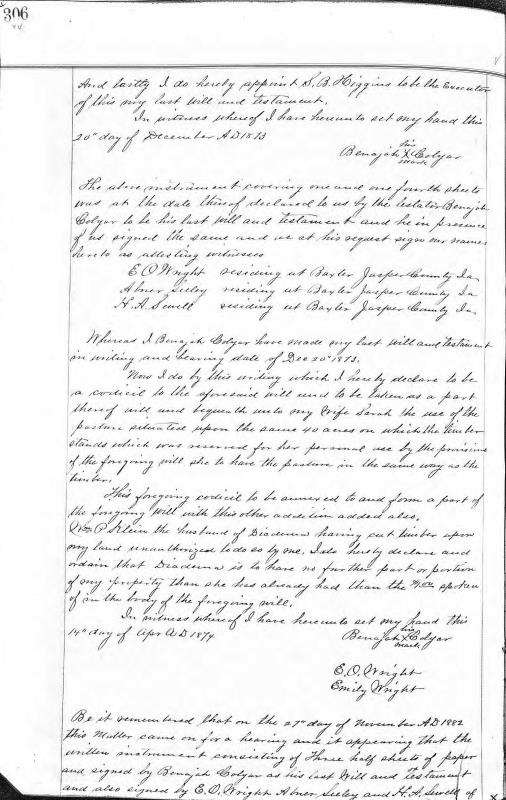 306
And lastly I do hereby appoint S. B. Higgins to be the Executor
of this my last will and testament.
In witness whereof I have hereunto set my hand this
20" day of December AD 1873
his
Benajah X Colyar
mark
The above instrument covering one and one fourth sheets
was at the date thereof declared to us by the testator Benajah
Colyar to be his last will and testament and he in presence
of us signed the same and we at his request sign our names
hereto as attesting witnesses
E O Wright residing at Baxter Jasper County Ia
Abner Seeley residing at Baxter Jasper County Ia
H. A. Sewell residing at Baxter Jasper County Ia
Whereas I Benajah Colyar have made my last will and testament
in writing and bearing date of Dec 20" 1873.
Now I do by this writing which I hereby declare to be
a codicil to the aforesaid will and to be taken as a part
thereof will and bequeath unto my Wife Sarah the use of the
pasture situated upon the same 40 acres on which the timber
stands which was reserved for her personal use by the provisions
of the foregoing will she to have the pasture in the same way as the
timber.
This foregoing codicil to be annexed to and form a part of
the foregoing will with this other addition added also,
Wm P. Klein the husband of Diadema having cut timber upon
my land unauthorized to do so by me. I also hereby declare and
ordain that Diadema is to have no further part or portion
of my property than she has already had than the spoken
of in the body of the foregoing will.
In witness whereof I have hereunto set my hand this
14" day of Apr AD 1874.
his
Benajah X Colyar
mark
E. O. Wright
Emily Wright
Be it remembered that on the 27" day of November AD 1882
this Matter came on for a hearing and it appearing that the
written instrument consisting of Three half sheets of paper
and signed by Benajah Colyar as his last Will and Testament
and also signed by E. O. Wright Abner Seeley and H. A. Sewell of